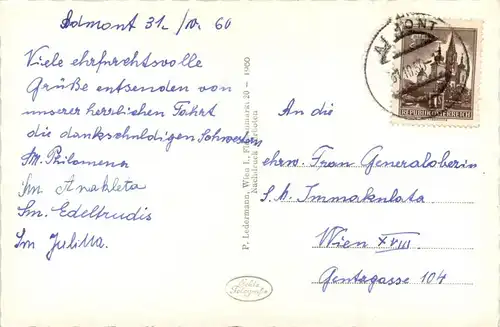 Admont 31./10. 60
Viele ehrfurchtsvolle
Grüße entsenden von
unserer herrlichen Fahrt
die dankschuldigen Schwestern
M. Philomena
Sm Anakleta
Sm. Edeltrudis
Sm Julitta.
P. Ledermann, Wien I., 20 – 1960
Nachdruck verboten
Echte
An die
ehrw. Frau Generaloberin
S. M. Immakulata
Wien XVIII.
Gentzgasse 104
REPUBLIK ÖSTERREICH